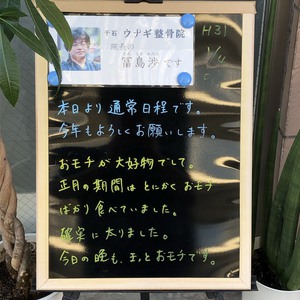 千石 ウナギ整骨院
院長の
冨島渉です
H31
1/4
本日より通常日程です。
今年もよろしくお願いします。
おモチが大好物でして。
正月の期間はとにかくおモチ
ばかり食べていました。
確実に太りました。
今日の晩も、きっとおモチです。